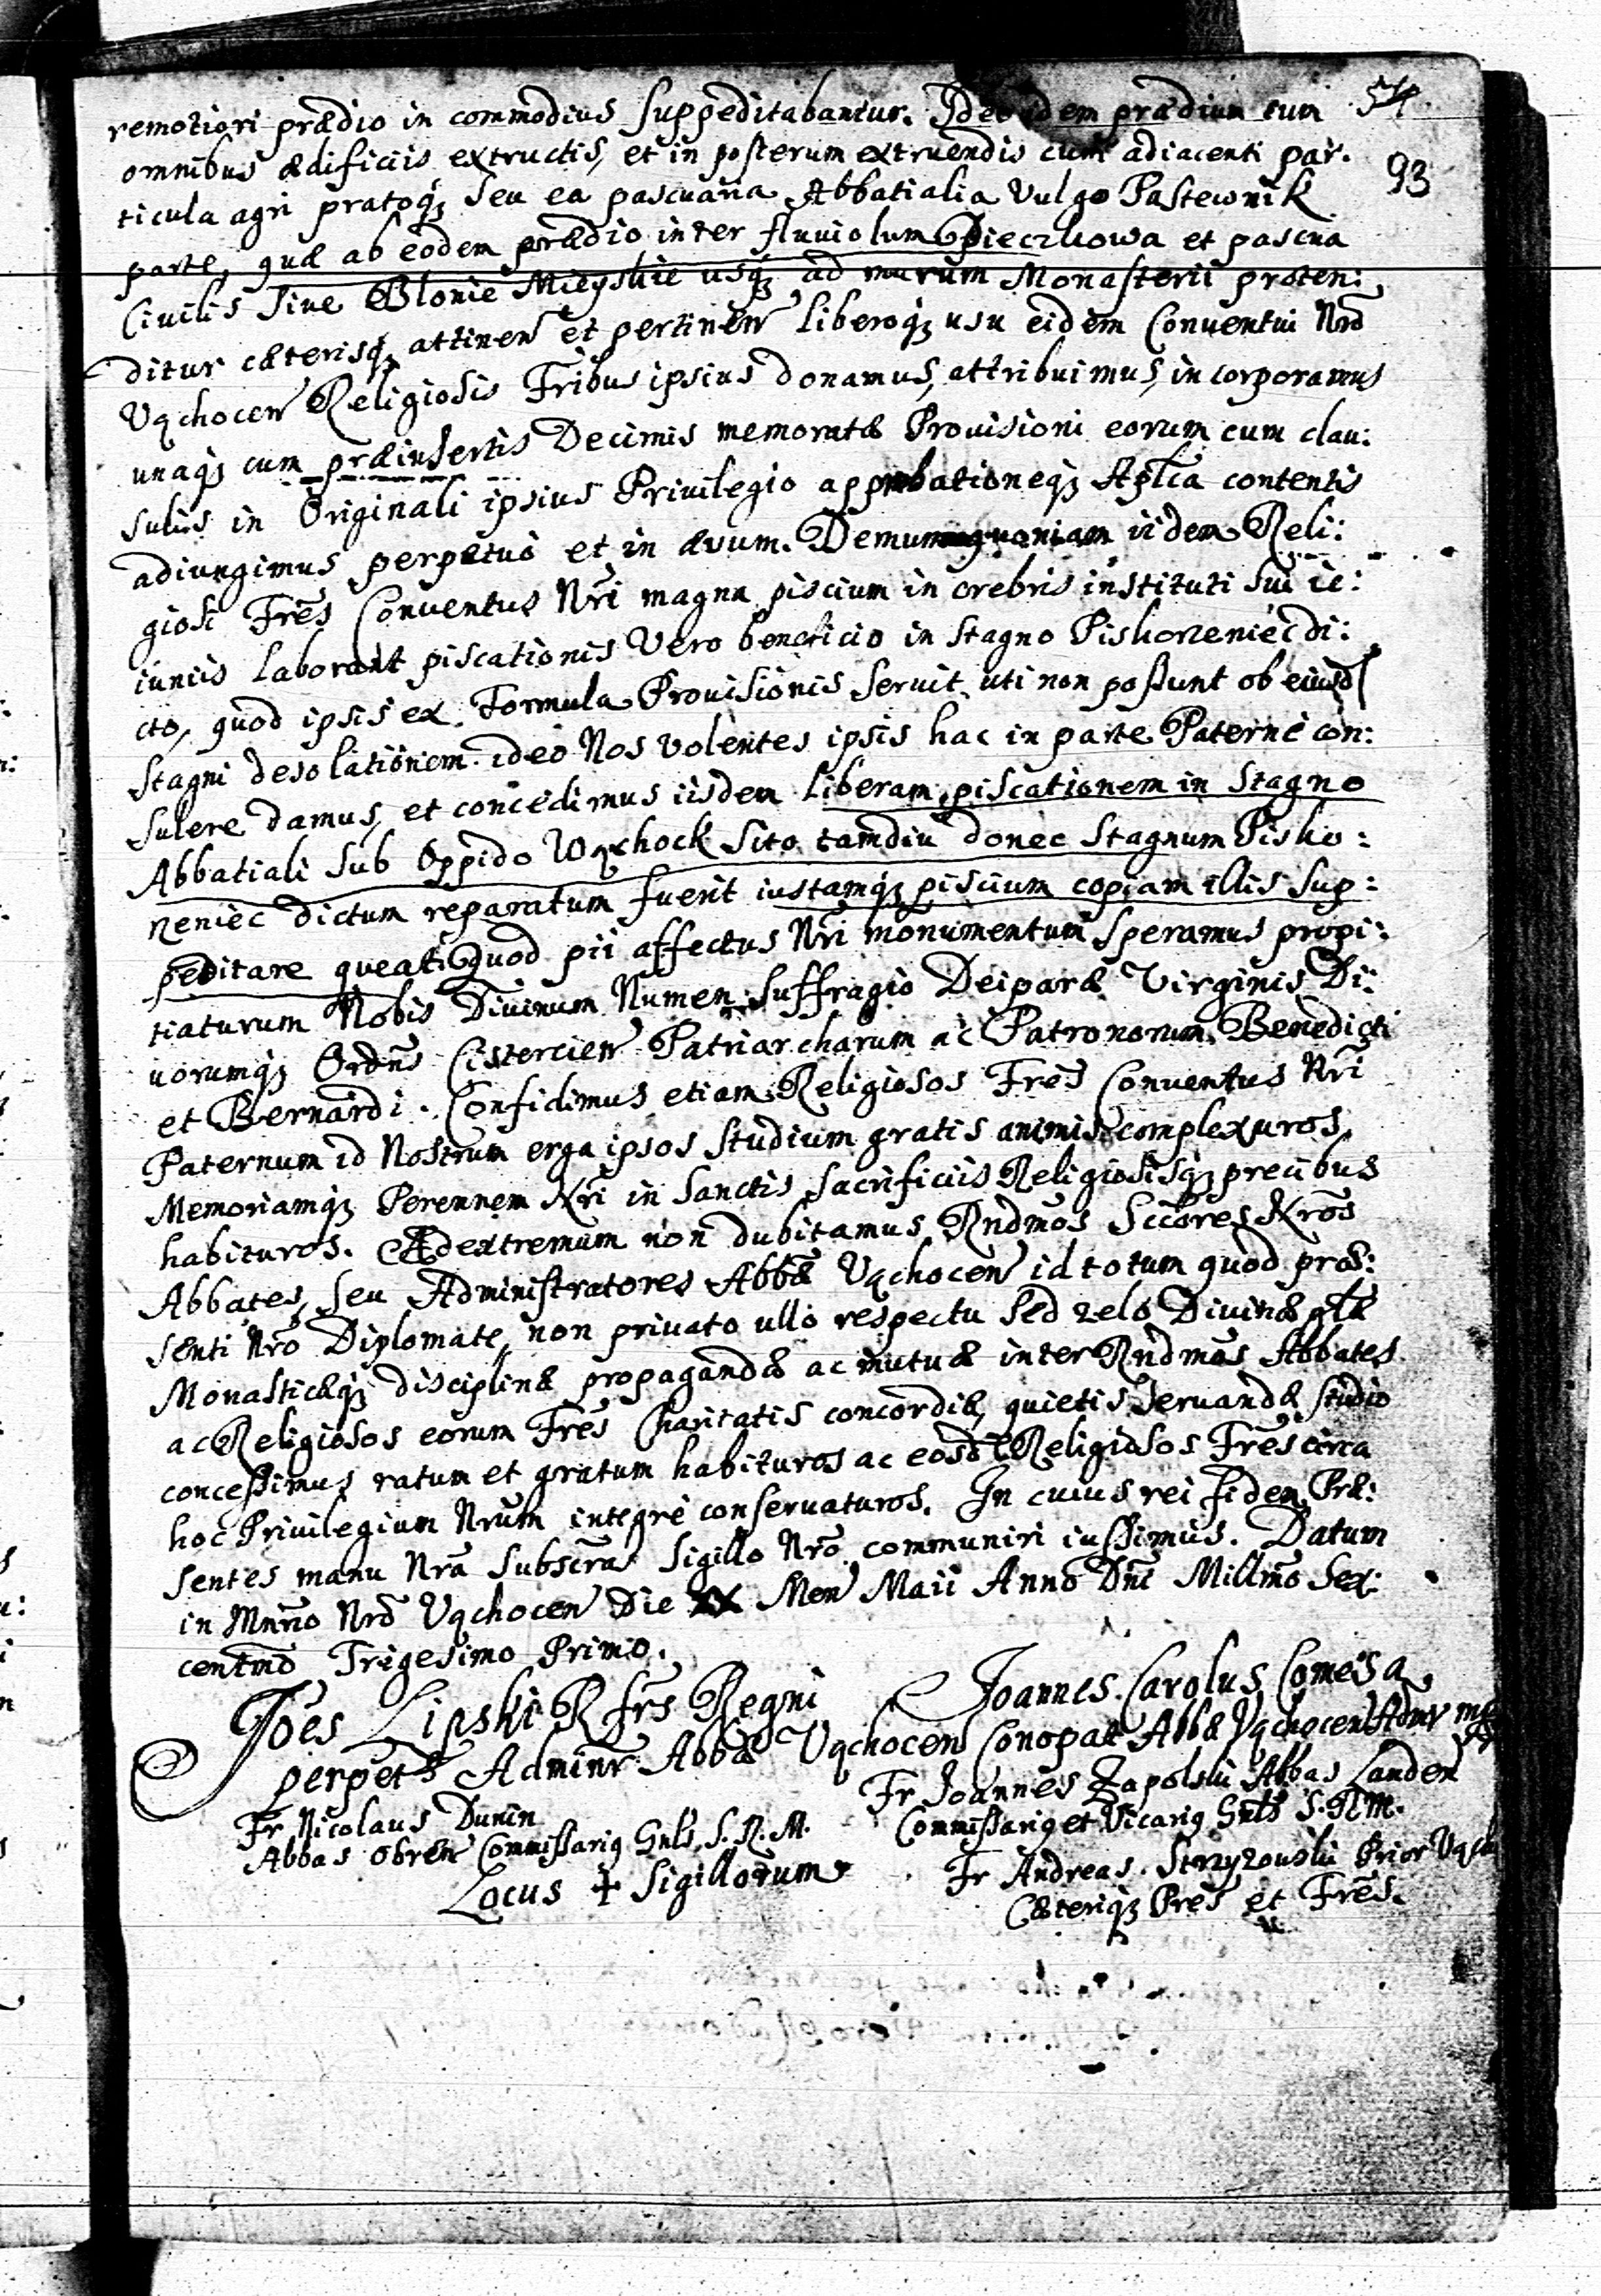 remotiori prædio in commodius suppeditabantur. Ideo idem prædium cum
54.
omnibus ædificiis extructis, et in posterum extruendis cum adiacenti par.
93
ticula agri pratoq; seu ea pascuaria Abbatialia Vulgo Pastewnik
parte, quæ ab eodem prædio inter fluuiolum Pieczkowa et pascua
Ciuilis siue Blonie Mieyskie usq; ad murum Monasterii proten:
ditur cæterisq; attinen et pertinen liberoq; usu eidem Conuentui Nrō
Vąchocen Religiosis Fribus ipsius donamus, attribuimus, incorporamus
unaq; cum præinsertis Decimis memoratæ Prouisioni eorum cum clau:
sulis in Originali ipsius Priuilegio approbationeq; Aplca contentis
adiungimus perpetuò et in æuum. Demum quoniam iidem Reli:
giosi Frēs Conuentus Nrī magna piscium in crebris instituti sui ie:
iuniis laborant piscationis Vero beneficio in stagno Piskorzeniec di:
cto, quod ipsis ex Formula Prouisionis seruit uti non possunt ob eiusd
stagni desolationem. ideo Nos volentes ipsis hac in parte Paternè con:
sulere damus, et concedimus iisdem liberam piscationem in Stagno
Abbatiali sub Oppido Wąchock sito tamdiu donec Stagnum Pisko:
rzeniec dictum reparatum fuerit iustamq; piscium copiam illis sup:
peditare queat. Quod pii affectus Nrī monumentum speramus propi:
tiaturum Nobis Diuinum Numen suffragio Deiparæ Virginis Di:
uorumq; Ordnīs Cistercien Patriarcharum ac Patronorum Benedicti
et Bernardi. Confidimus etiam Religiosos Frēs Conuentus Nrī
Paternum id Nostrum erga ipsos studium gratis animis complexuros,
Memoriamq; Perennem Nrī in Sanctis sacrificiis Religiosisq; precibus
habituros. Ad extremum non dubitamus Rndmōs Sccōres Nrōs
Abbates, seu Administratores Abbæ Vąchocen id totum quod præ:
senti Nrō Diplomate, non priuato ullo respectu sed zelo Diuinæ glæ
Monasticæq; disciplinæ propagandæ ac mutuæ inter Rndmōs Abbates
ac Religiosos eorum Frēs Charitatis concordiæ, quietis seruandæ studio
concessimus ratum et gratum habituros ac eosd Religiosos Frēs circa
hoc Priuilegium Nrūm integrè conseruaturos. In cuius rei fidem Præ:
sentes manu Nrā subscrās sigillo Nrō communiri iussimus. Datum
in Mnrīo Nrō Vąchocen Die XX Men Maii Anno Dnī Millmō Sex:
centmō Trigesimo Primo.
Joēs Lipski R frs Regni
perpet9 Adminr Abbæ Vąchocen
Fr Nicolaus Dunin
Abbas Obren Commissariq Gnls, S. R. M.
Locus + Sigillorum
Joannes Carolus Comes a
Conopat Abbæ Vąchocen Admr mp
Fr Joannes Zapolski Abbas Landen
Commissariq et Vicariq Gnls S. R M.
Fr Andreas Strzyzowski Prior Vąch
Cæteriq; Pres et Frēs.